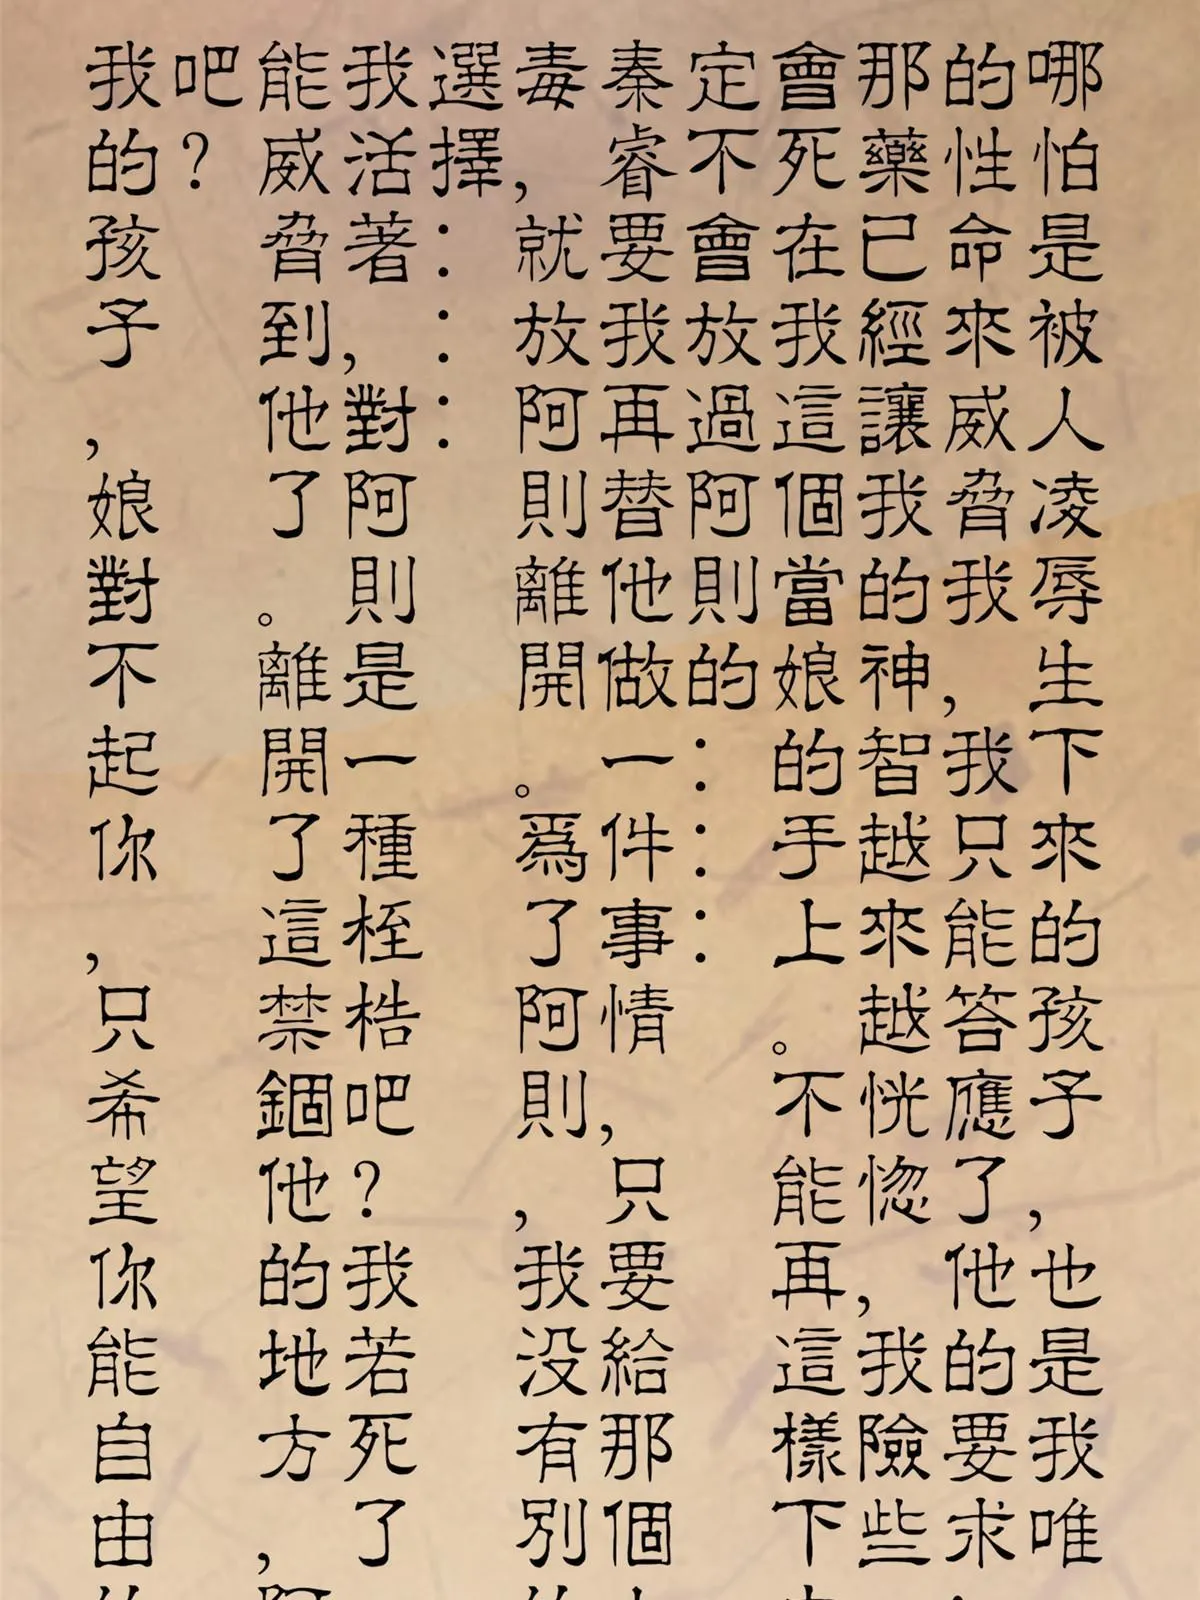 哪怕是被人凌辱生下來的孩子，也是我唯
的性命來威脅我，我只能答應了他的要求
那藥已經讓我的神智越來越恍惚，我險些
會死在我這個當娘的手上。不能再這樣下
定不會放過阿則的：：：
秦睿要我再替他做一件事情，只要給那個
毒，就放阿則離開。爲了阿則，我没有別
選擇：：：
我活著，對阿則是一種桎梏吧？我若死了
能威脅到他了。離開了這禁錮他的地方，
吧？
我的孩子，娘對不起你，只希望你能自由